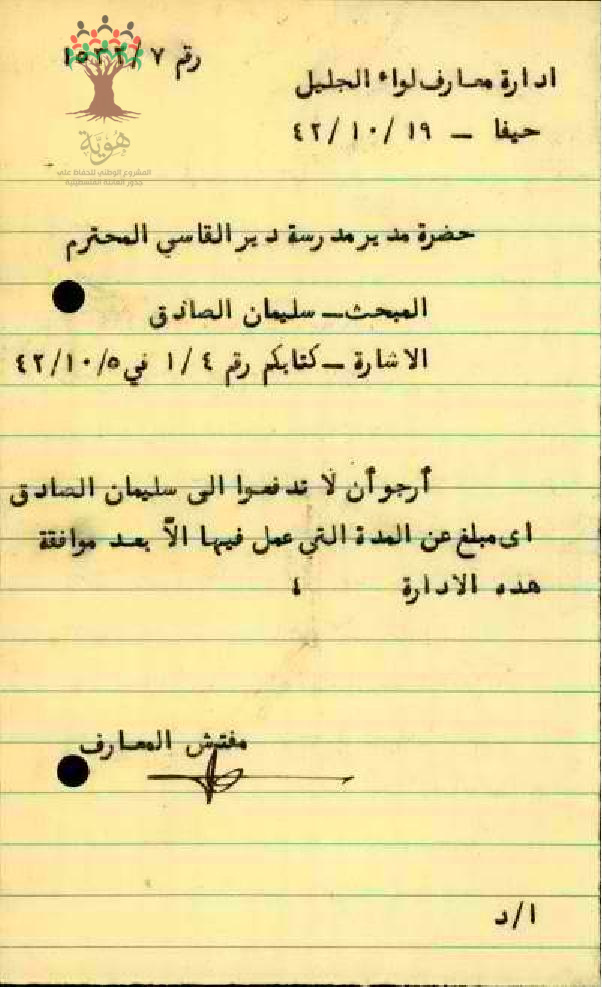 رقم ٧/١٥٢٢
ادارة معارف لواء الجليل
حيفا - ٤٢/١٠/١٩
هويّة
المشروع الوطني للحفاظ على
جذور العائلة الفلسطينية
حضرة مدير مدرسة دير القاسي المحترم
المبحث - سليمان الصادق
الاشارة - كتابكم رقم ١/٤ في ٤٢/١٠/٥
أرجو أن لا تدفعوا الى سليمان الصادق
اى مبلغ عن المدة التي عمل فيها الاّ بعد موافقة
هذه الادارة ٤
مفتش المعارف
ا/د